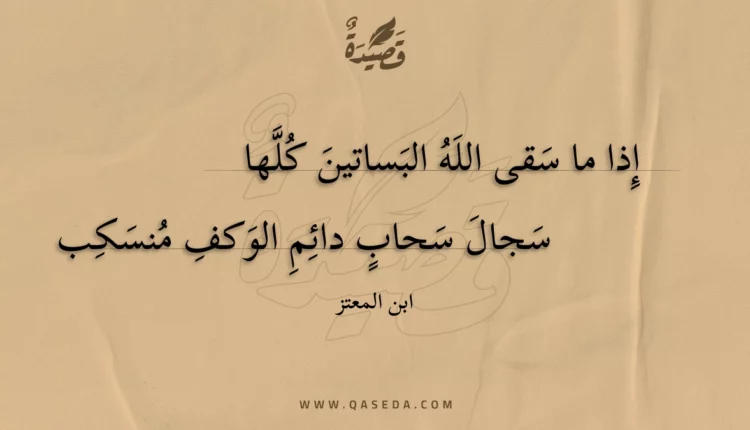 قَصِيدَةٌ
إِذا ما سَقى اللَهُ البَساتينَ كُلَّها
سَجالَ سَحابٍ دائِمِ الوَكفِ مُنسَكِب
ابن المعتز
WWW.QASEDA.COM